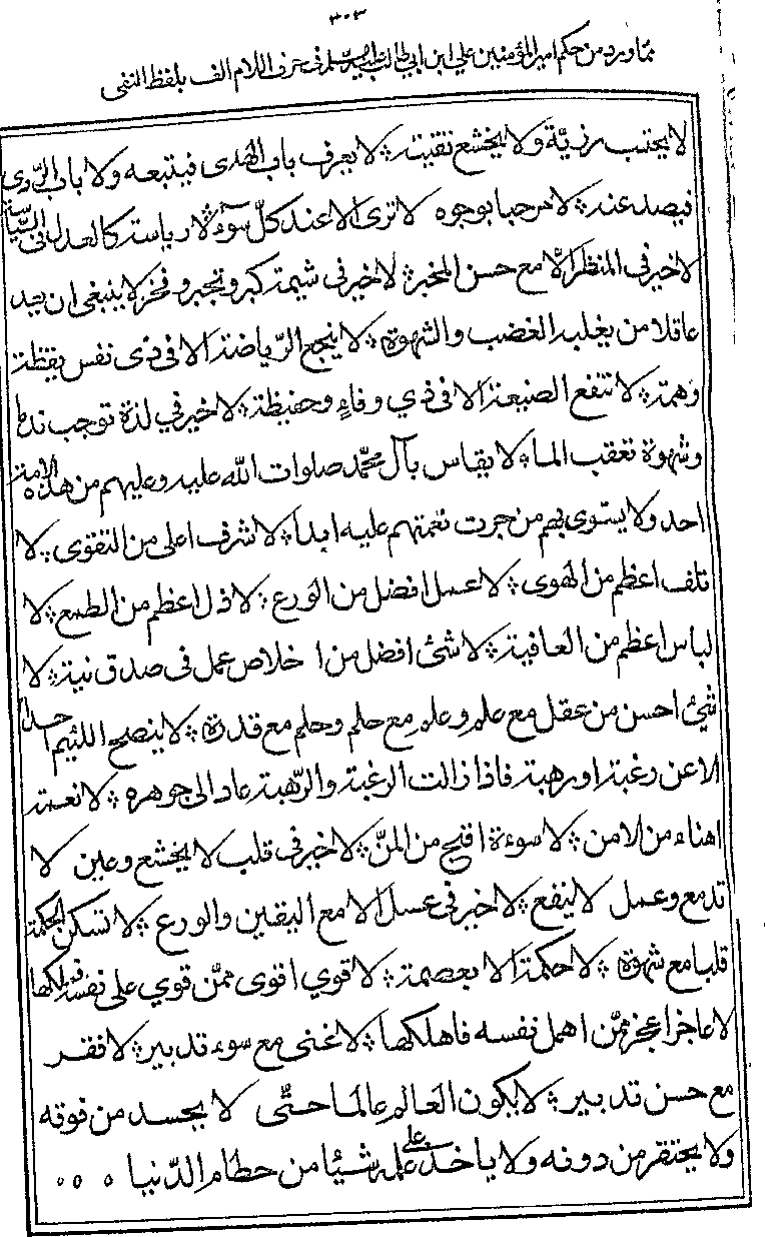 ٣٠٣
مما ورد من حكم امير المؤمنين علي ابن ابي طالب عليه السلام في حرف اللام الف بلفظ النفي
لا يحتسب رزيّة ولا يخشع نقيّة ؛ لا يعرف باب الهدى فيتبعه ولا باب الرّدى
فيصد عنه ؛ لا مرحبا بوجوه لا ترى الا عند كلّ سوء ؛ لا رياسة كالعدل فى السّياسة
لا خير فى المنظر الّا مع حسن المخبر ؛ لا خير فى شيمة كبر وتجبر وفخر ؛ لا ينبغى ان يعد
عاقلا من يغلبه الغضب والشهوة ؛ لا ينجع الرّياضة الا فى ذى نفس يقظة
وهمة ؛ لا تنفع الصنيعة الا فى ذي وفاءٍ وحفيظة ؛ لا خير في لذة توجب ندما
وشهوة تعقب الما ؛ لا يقاس بآل محمّد صلوات الله عليه وعليهم من هذه الامة
احد ولا يستوى بهم من جرت نعمتهم عليه ابدا ؛ لا شرف اعلى من التقوى ؛ لا
تلف اعظم من الهوى ؛ لا عمل افضل من الورع ؛ لا ذل اعظم من الطمع ؛ لا
لباس اعظم من العافية ؛ لا شئ افضل من اخلاص عمل فى صدق نية ؛ لا
شئ احسن من عقل مع علم وعلم مع حلم وحلم مع قدرة ؛ لا ينصح اللئيم احدا
الا عن رغبة او رهبة فاذا زالت الرغبة والرّهبة عاد الى جوهره ؛ لا نعمة
اهناء من الامن ؛ لا سوءة اقبح من المنّ ؛ لا خير فى قلب لا يخشع وعين لا
تدمع وعمل لا ينفع ؛ لا خير فى عمل الا مع اليقين والورع ؛ لا تسكن الحكمة
قلبا مع شهوة ؛ لا حكمة الا بعصمة ؛ لا قوي اقوى ممّن قوي على نفسه فملكها
لا عاجز اعجز ممّن اهمل نفسه فاهلكها ؛ لا غنى مع سوء تدبير ؛ لا فقر
مع حسن تدبير ؛ لا يكون العالم عالما حتّى لا يحسد من فوقه
ولا يحتقر من دونه ولا ياخذ على علمه شيئا من حطام الدّنيا